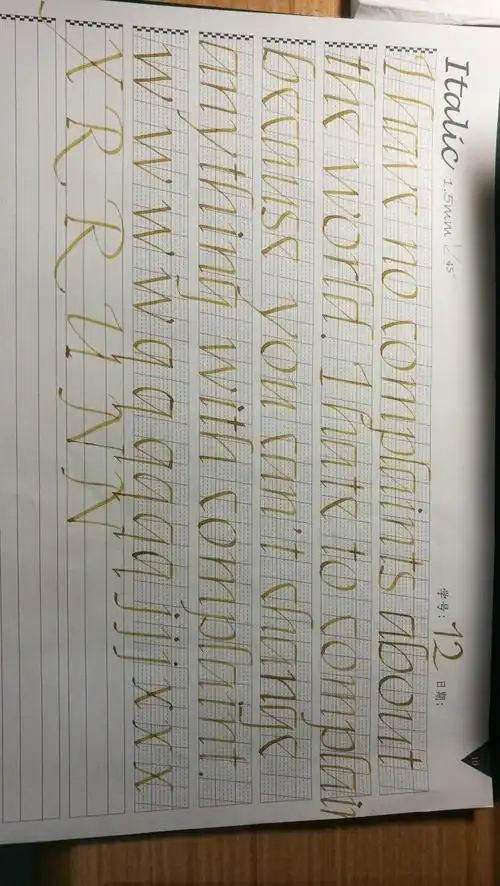 Italic 1.5mm 45°
学号: 12 日期:
10
I have no complaints about
the world. I hate to complain
because you can't change
anything with complaint.
w w w w q q q q q j j j x x x
X R R Y N N